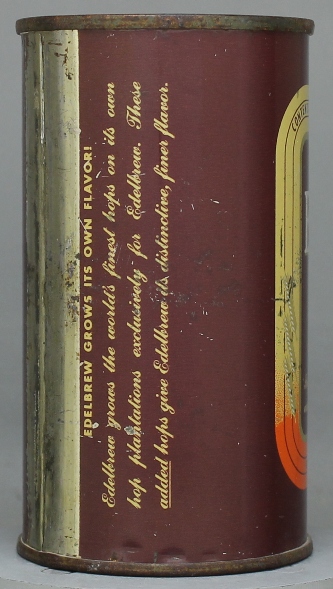 EDELBREW GROWS ITS OWN FLAVOR!
Edelbrew grows the world's finest hops on its own
hop plantations exclusively for Edelbrew. These
added hops give Edelbrew its distinctive, finer flavor.